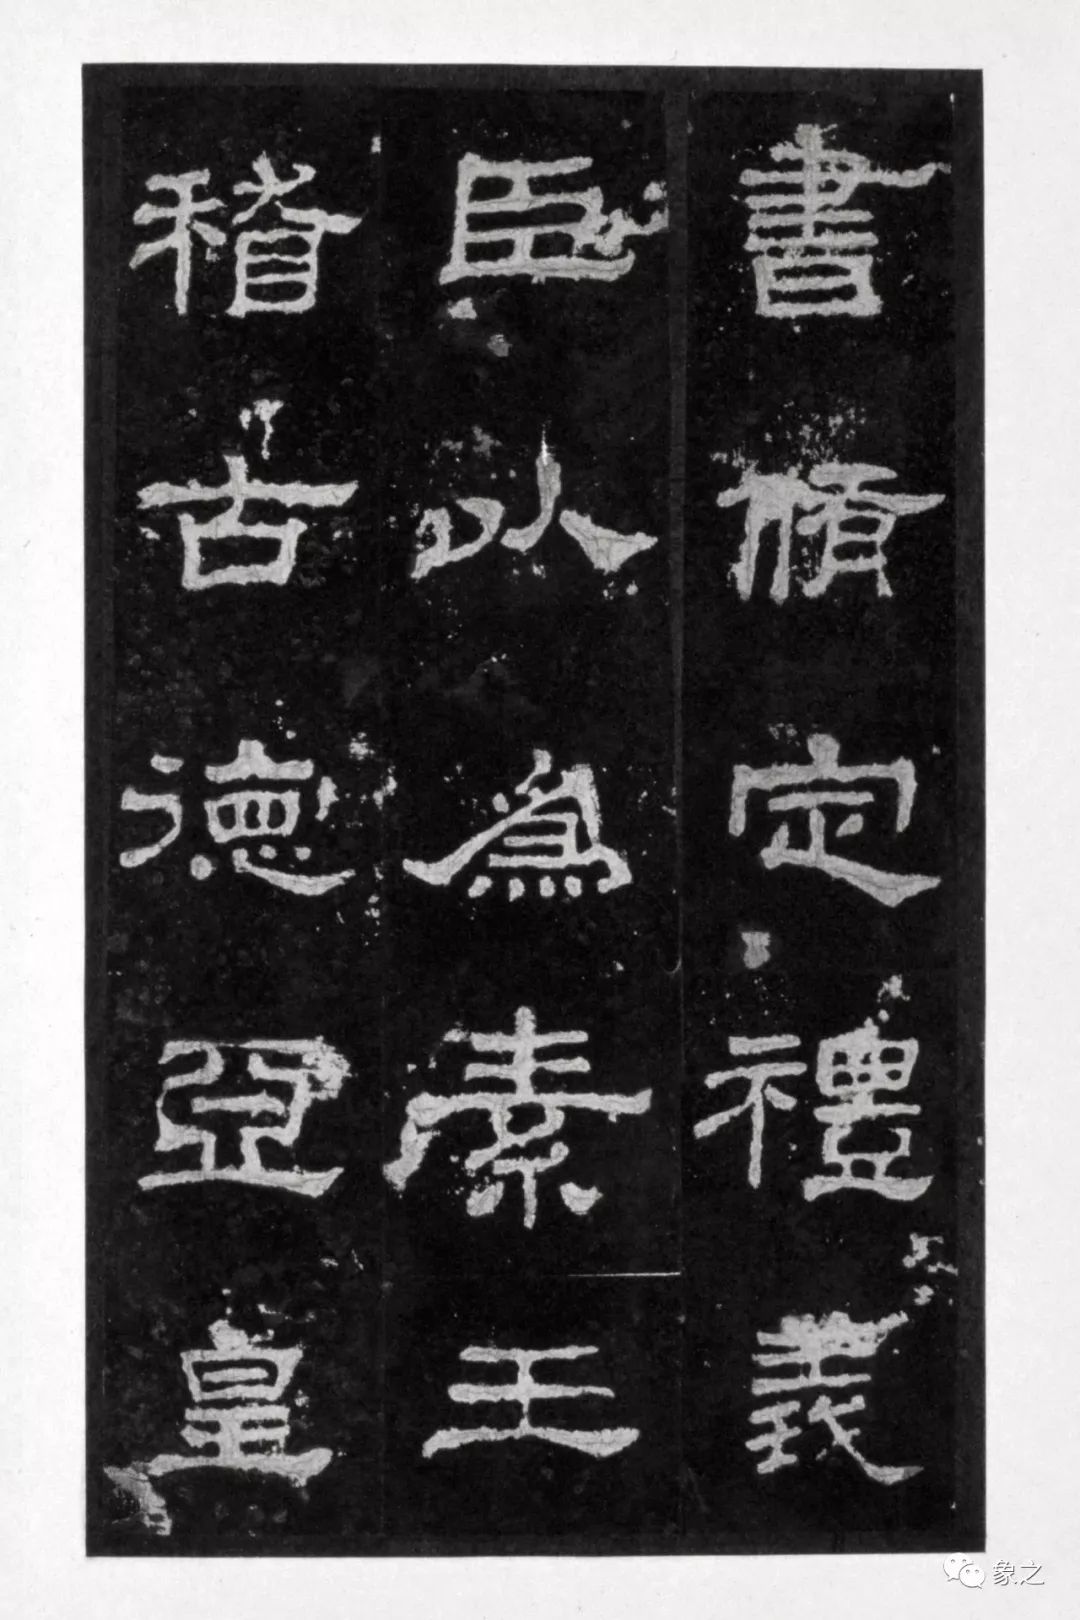 書脩定禮義
臣以為素王
稽古德亞皇
象之